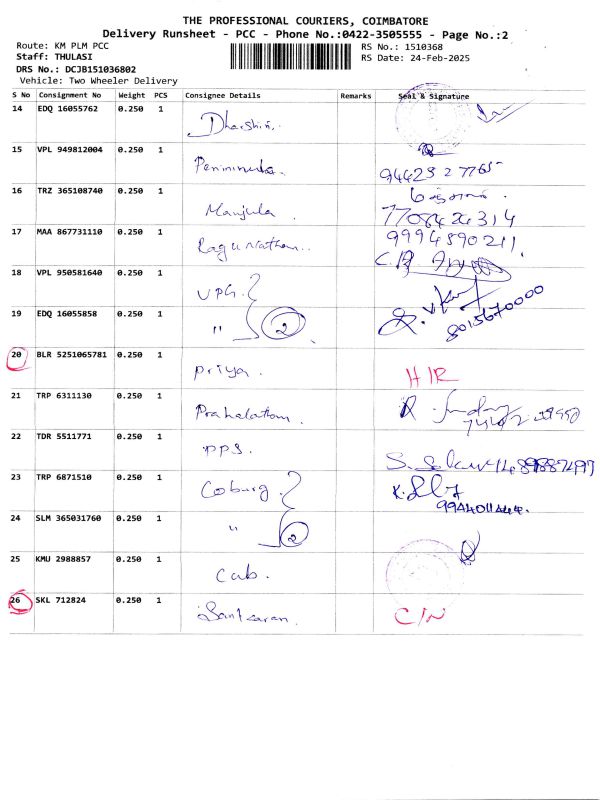 THE PROFESSIONAL COURIERS, COIMBATORE
Delivery Runsheet - PCC - Phone No.:0422-3505555 - Page No.:2
Route: KM PLM PCC
RS No.: 1510368
Staff: THULASI
RS Date: 24-Feb-2025
DRS No.: DCJB151036802
Vehicle: Two Wheeler Delivery
S No Consignment No Weight PCS Consignee Details Remarks Seal & Signature
14 EDQ 16055762 0.250 1 Dharshini.
15 VPL 949812004 0.250 1
16 TRZ 365108740 0.250 1 Manjula 7708424314
17 MAA 867731110 0.250 1 Ragunathan.. 9994890211.
18 VPL 950581640 0.250 1 UPG.
19 EDQ 16055858 0.250 1 " 2 8015670000
20 BLR 5251065781 0.250 1 Priya. HIR
21 TRP 6311130 0.250 1
22 TDR 5511771 0.250 1 PPS.
23 TRP 6871510 0.250 1 Coburg. 9944011444.
24 SLM 365031760 0.250 1 " 2
25 KMU 2988857 0.250 1 Cub.
26 SKL 712824 0.250 1 Sankaran. C/N